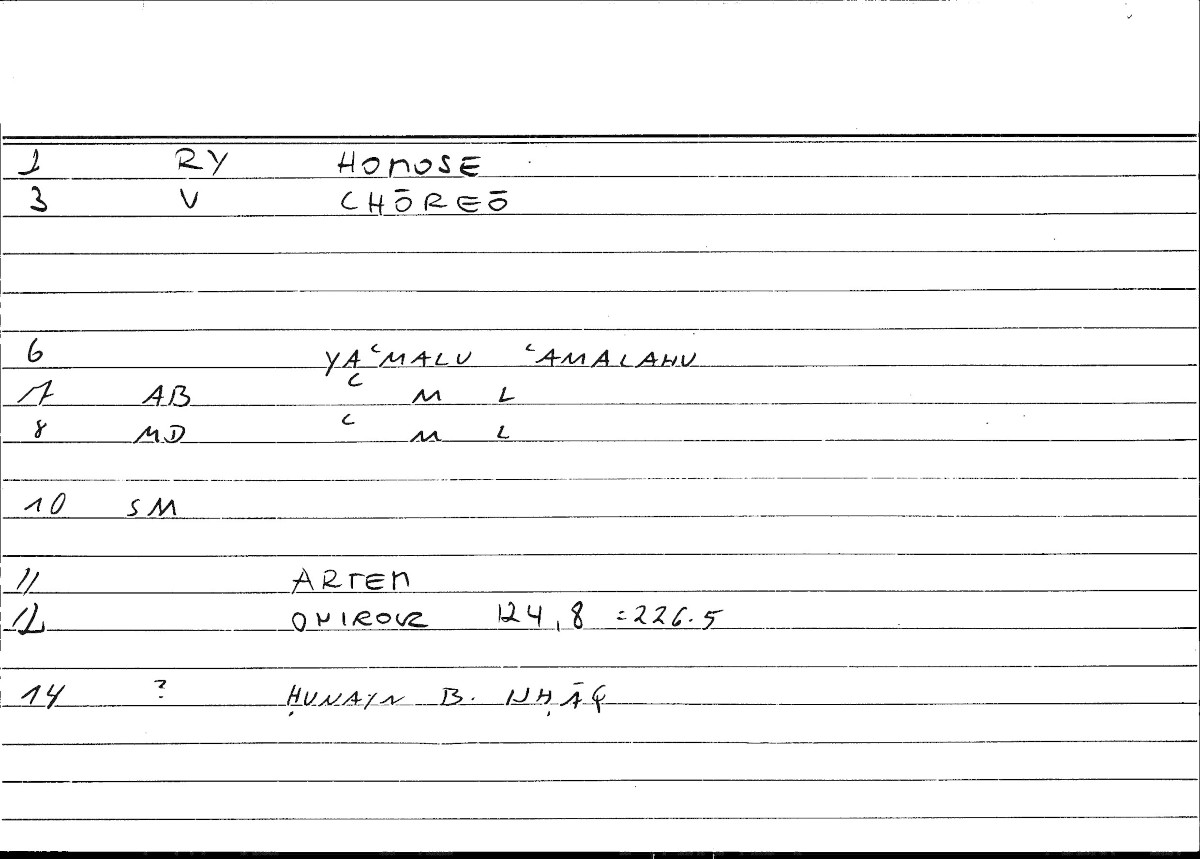 1 RY HOMOSE
3 V CHŌREŌ
6 YAʿMALU ʿAMALAHU
7 AB ʿ M L
8 MD ʿ M L
10 SM
11 ARTEM
12 ONIROCR 124,8 =226.5
14 ? ḤUNAYN B. ISḤĀQ